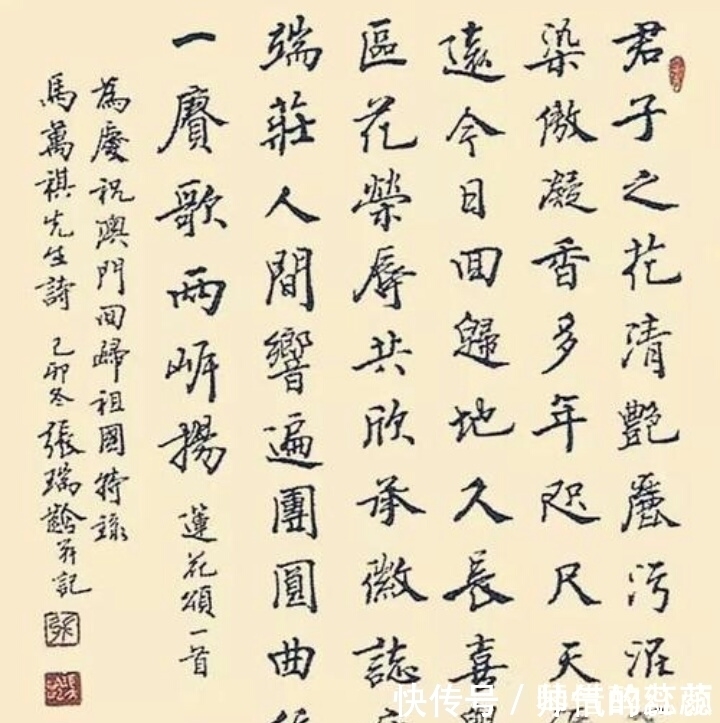 君子之花清艷麗污泥
染傲凝香多年咫尺天
遠今日回歸地久長喜
區花榮辱共欣承徽誌
端莊人間響遍團圓曲
一賡歌兩岸揚 蓮花頌一首
為慶祝澳門回歸祖國特錄
馬萬祺先生詩 己卯冬張瑞齡并記
快传号 /